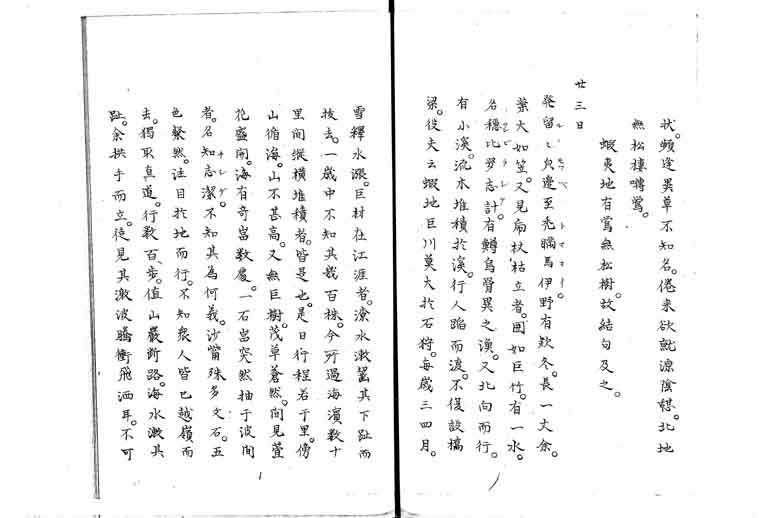 狀。頻逢異草不知名。倦來欲就涼陰憩。北地
無松棲囀鶯。
蝦夷地有鶯無松樹。故結句及之。
廿三日
發留〻與邊至禿瞞馬伊野有款冬。長一丈余。
葉大如笠。又見扁杖枯立者。圍如巨竹。有一水。
名穗比努志計。有鱒烏胥異之漢。又北向而行。
有小溪。流木堆積於溪。行人蹈而渡。不復設橋
梁。從夫云蝦地巨川莫大於石狩。每歲三四月。
雪釋水漲。巨材在江涯者。潦水漱齧其下趾而
拔去。一歲中不知其幾百株。今所過海濱數十
里間縱橫堆積者。皆是也。是日行程若干里。傍
山循海。山不甚高。又無巨樹。茂草蒼然。間見萱
花盛開。海有奇嵓數處。一石嵓突然抽于波間
者。名知志潔。不知其為何義。沙觜殊多文石。五
色粲然。注目於地而行。不知衆人皆已越嶺而
去。獨取直道。行數百步。值山巖斷路。海水漱其
趾。余拱手而立。徒見其激波騰衝飛洒耳。不可